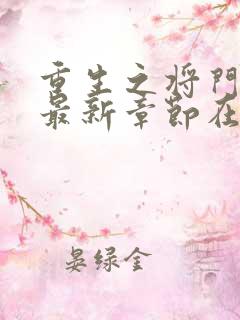 重生之将门
最新章节在
晏绿金